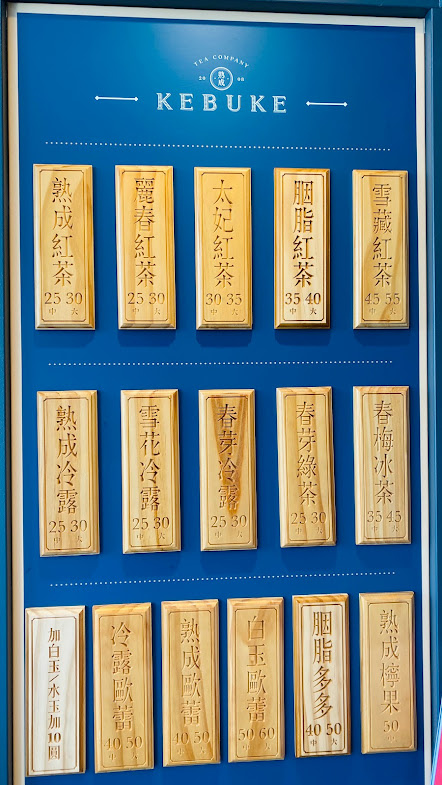 TEA COMPANY
20 熟成 08
KEBUKE
熟成紅茶
25 30
中 大
麗春紅茶
25 30
中 大
太妃紅茶
30 35
中 大
胭脂紅茶
35 40
中 大
雪藏紅茶
45 55
中 大
熟成冷露
25 30
中 大
雪花冷露
25 30
中 大
春芽冷露
25 30
中 大
春芽綠茶
25 30
中 大
春梅冰茶
35 45
中 大
加白玉/水玉加10圓
冷露歐蕾
40 50
中 大
熟成歐蕾
40 50
中 大
白玉歐蕾
50 60
中 大
胭脂多多
40 50
中 大
熟成檸果
50